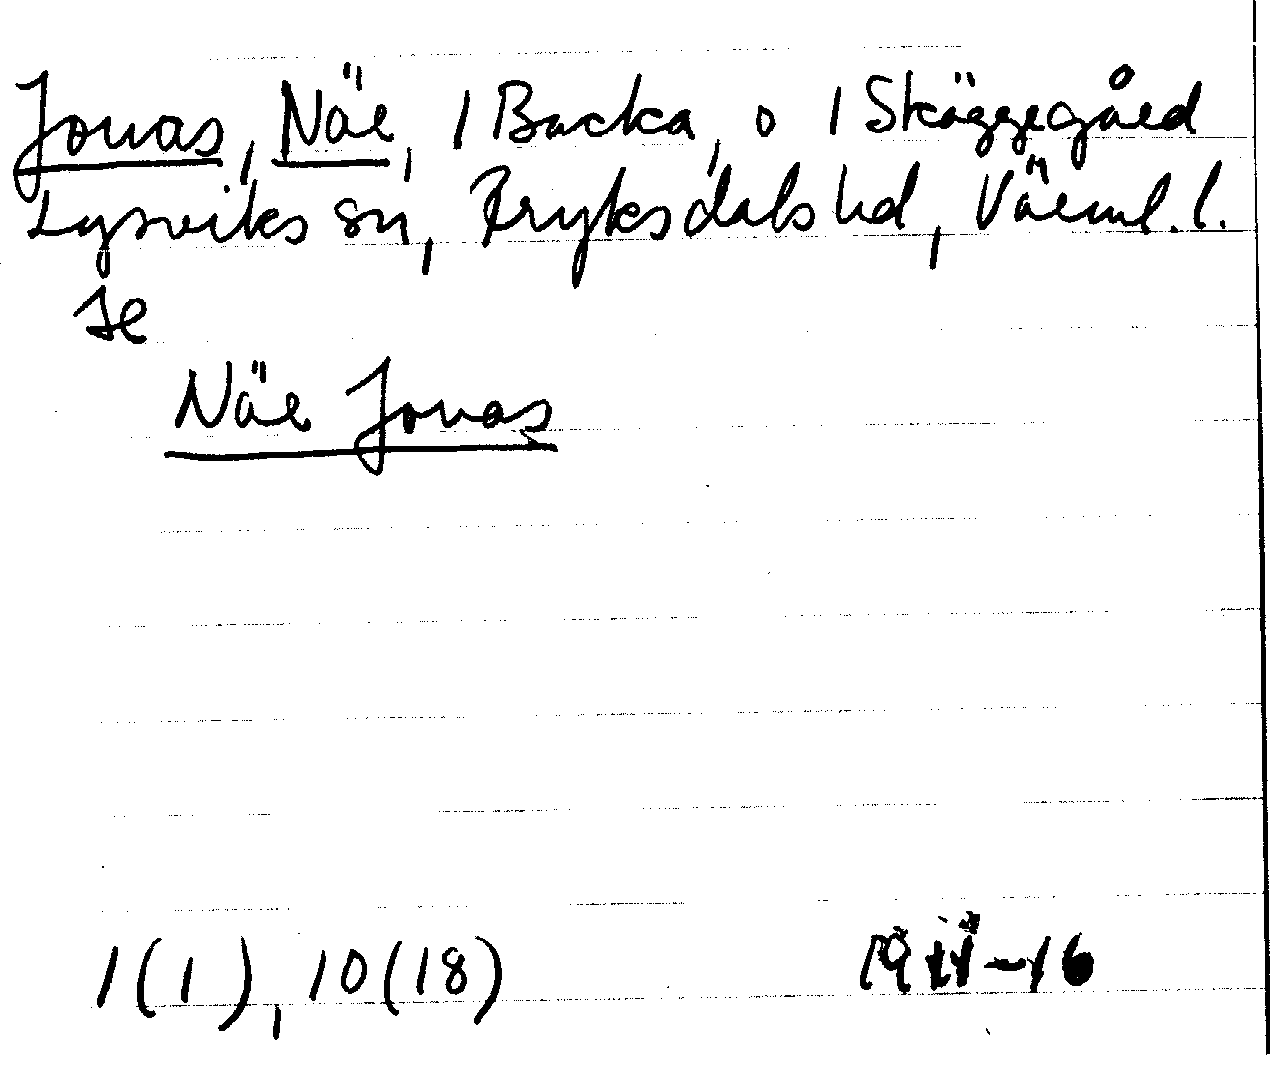 Jonas, När, 1 Backa, o 1 Skäggegård
Lysviks sn, Fryksdals hd, Värml. l.
se
När Jonas
1(1), 10(18) 1911-16